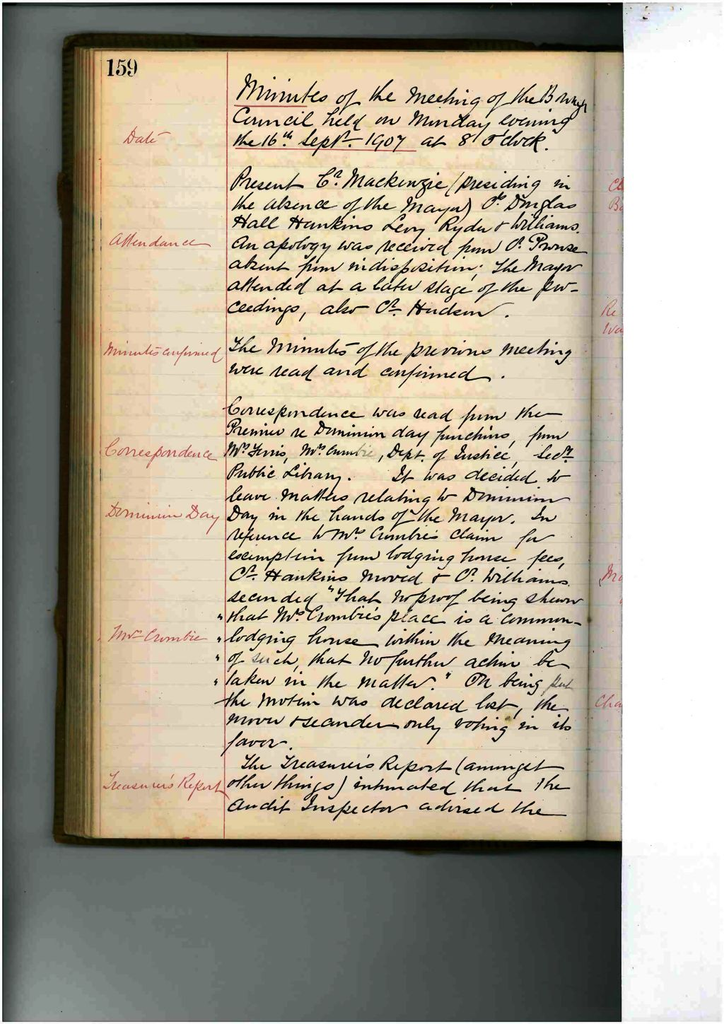 159
Minutes of the Meeting of the Borough
Council held on Monday evening
Date
the 16th Septr. 1907 at 8 o'clock.
Present Cr. Mackenzie (presiding in
the absence of the Mayor) Crs Douglas
Hall Hawkins Levy Ryder & Williams.
Attendance
An apology was received from Cr. Prouse
absent from indisposition. The Mayor
attended at a later stage of the pro-
ceedings, also Cr. Hudson.
Minutes confirmed
The Minutes of the previous meeting
were read and confirmed.
Correspondence was read from the
Premier re Dominion day functions, from
Correspondence
Mrs Crumbie, Dept. of Justice, Secty.
Public Library. It was decided to
leave matters relating to Dominion
Dominion Day
Day in the hands of the Mayor. In
reference to Mrs Crombie's claim for
exemption from lodging house fees,
Cr. Hawkins moved & Cr. Williams
seconded "That no proof being shewn
" that Mrs Crombie's place is a common-
Mrs Crombie
" lodging house within the meaning
" of such, that no further action be
" taken in the matter." On being put
the motion was declared lost, the
mover & seconder only voting in its
favor.
The Treasurer's Report (amongst
Treasurer's Report
other things) intimated that the
Audit Inspector advised the